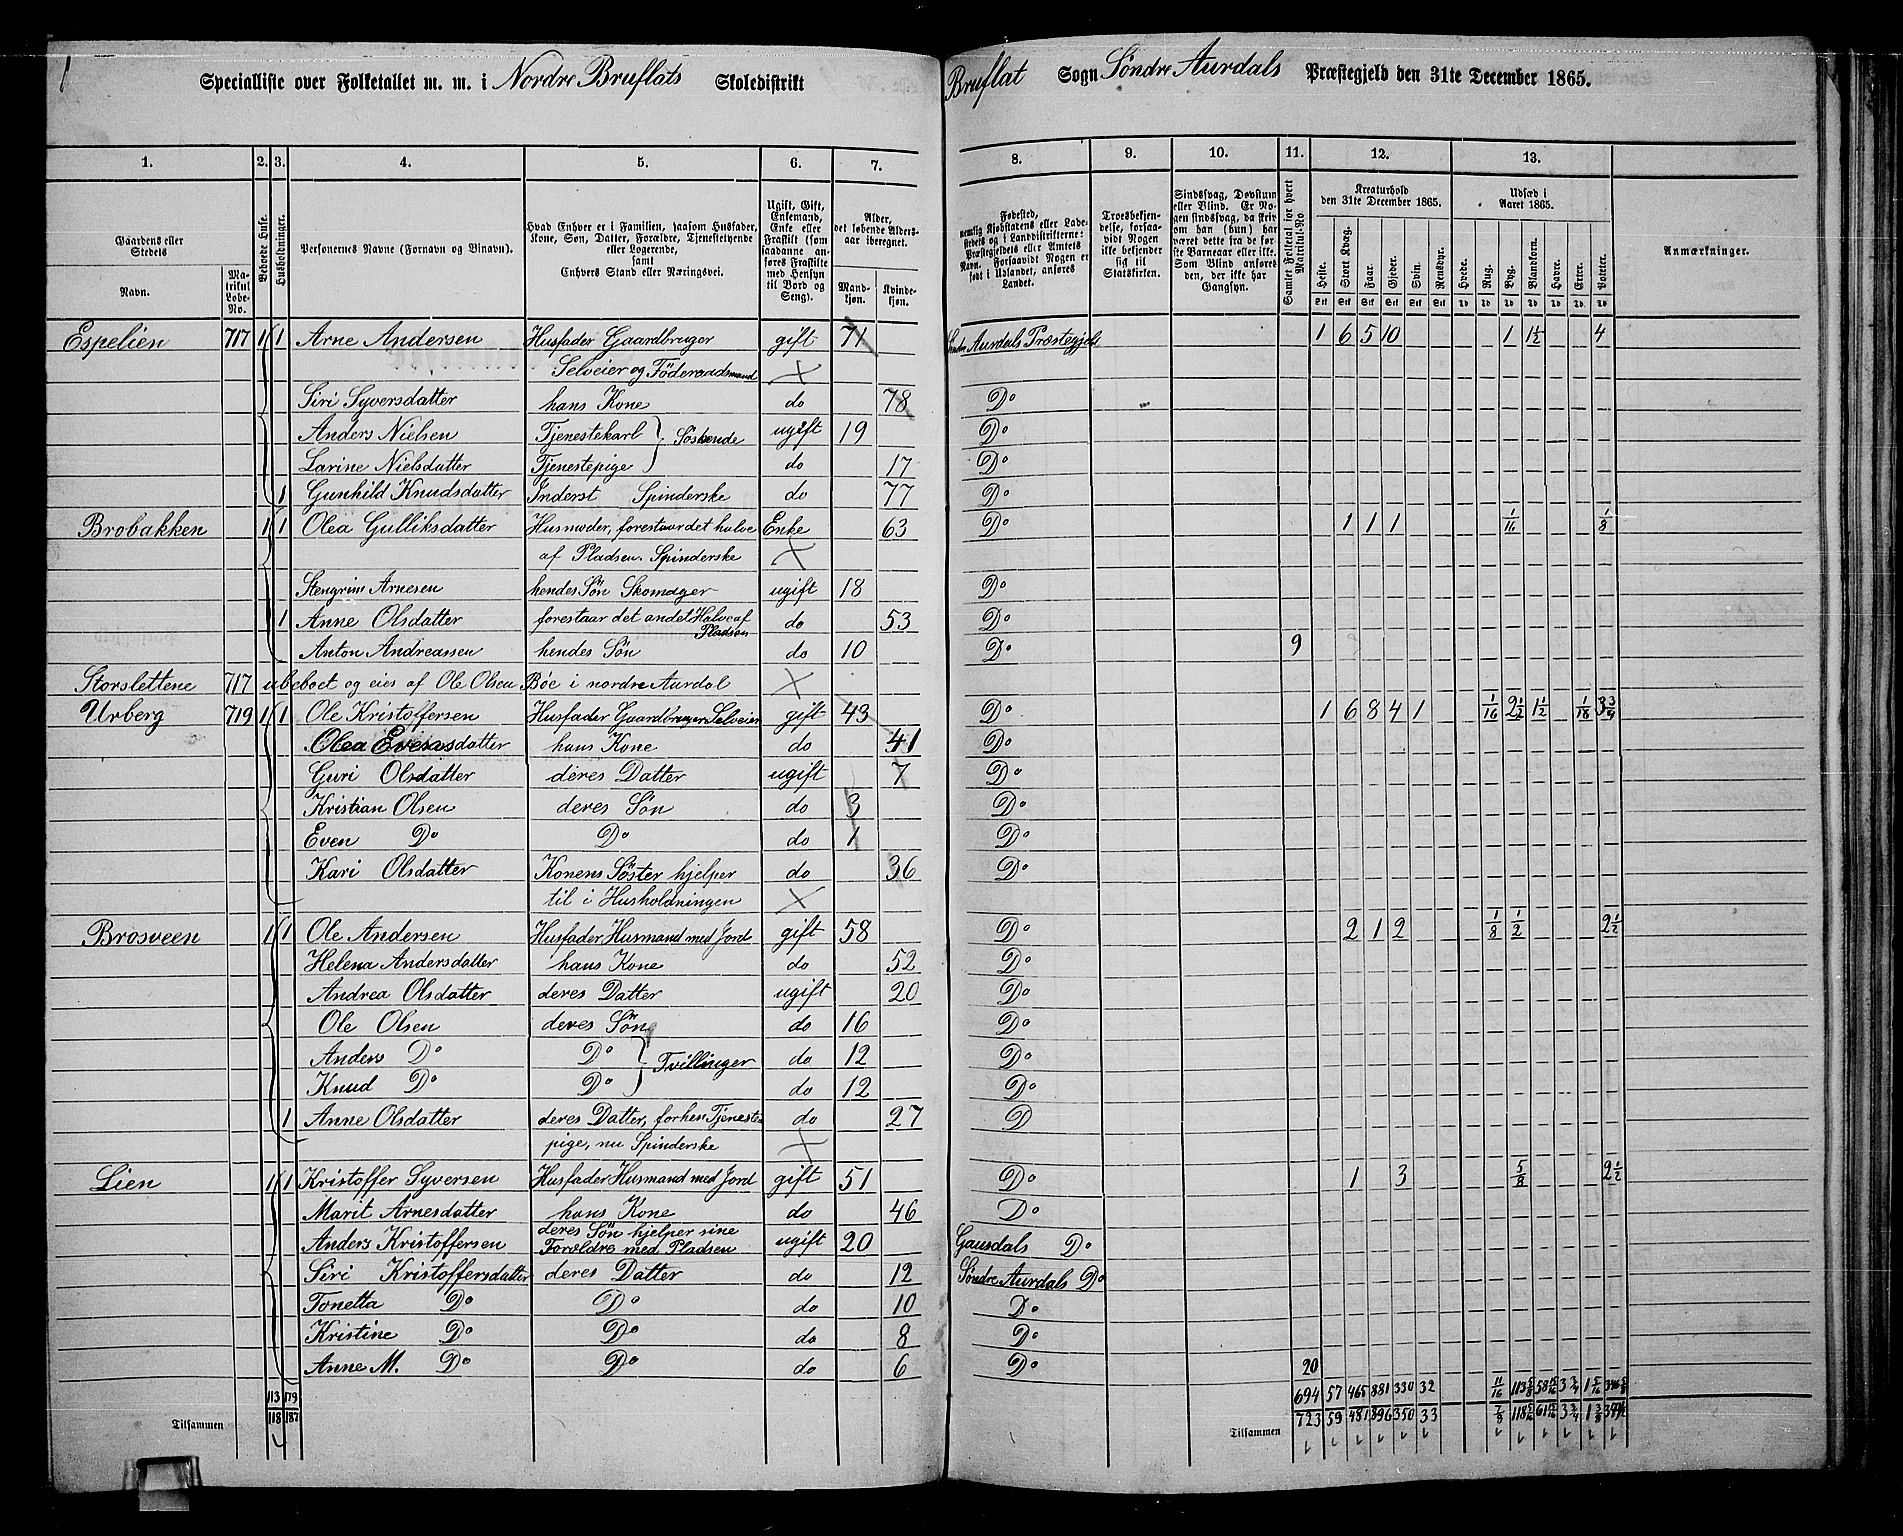 Specialliste over Folketallet m. m. i Nordre Bruflats Skoledistrikt Bruflat Sogn Söndre Aurdals Præstegjeld den 31te December 1865.
1. 2. 3. 4. 5. 6. 7. 8. 9. 10. 11. 12. 13.
Gaardens eller Stedets Navn. Matrikul Løbe-No. Beboede Huse. Husholdninger. Personernes Navne (Fornavn og Binavn). Hvad Enhver er i Familien, saasom Husfader, Kone, Søn, Datter, Forældre, Tjenestetyende eller Logerende, samt Enhvers Stand eller Næringsvei. Ugift, Gift, Enkemand, Enke eller Fraskilt (som saadanne anføres Fraskilte med Hensyn til Bord og Seng). Alder, det løbende Alders-aar iberegnet. Mandkjøn. Kvindekjøn.
Fødested, nemlig Kjøbstadens eller Ladestedets og i Landdistrikterne: Præstegjeldets eller Amtets Navn. Forsaavidt Nogen er født i Udlandet, anføres Landet. Troesbekjendelse, forsaavidt Nogen ikke bekjender sig til Statskirken. Sindssvag, Døvstum eller Blind. Er Nogen sindssvag, da skrives om han (hun) har været dette fra de første Barneaar eller ikke. Som Blind anføres den, der ikke har Gangsyn. Samlet Folketal for hvert Matrikul-No Kreaturhold den 31te December 1865. Heste. Stort Kvæg. Faar. Gjeder. Svin. Rensdyr. Udsæd i Aaret 1865. Hvede. Rug. Byg. Blandkorn. Havre. Erter. Poteter. Anmærkninger.
Espelien 717 1 1 Arne Andersen Husfader Gaardbruger gift 71 Söndre Aurdals Præstegjeld 1 6 5 10 1 1½ 4
Selveier og Föderaadsmand
Siri Syversdatter hans Kone do 78 Do
Anders Nielsen Tjenestekarl } Söskende ugift 19 Do
Larine Nielsdatter Tjenestepige do 17 Do
1 Gunhild Knudsdatter Inderst Spinderske do 77 Do
Brobakken 1 1 Olea Gulliksdatter Husmoder, forestaar det halve Enke 63 Do 1 1 1 1/16 1/8
af Pladsen. Spinderske
Stengrim Arnesen hendes Sön Skomager ugift 18 Do
1 Anne Olsdatter forestaar det andet Halve af Pladsen do 53 Do
Anton Andreassen hendes Sön do 10 Do 9
Storslettene 717 ubeboet og eies af Ole Olsen Böe i nordre Aurdal
Urberg 719 1 1 Ole Kristoffersen Husfader Gaardbruger Selveier gift 43 Do 1 6 8 4 1 1/16 2½ 1½ 1/18 3 3/9
Olea Evensdatter hans Kone do 41 Do
Guri Olsdatter deres Datter ugift 7 Do
Kristian Olsen deres Sön do 3 Do
Even Do Do do 1 Do
Kari Olsdatter Konens Söster hjelper do 36 Do
til i Husholdningen
Brosveen 1 1 Ole Andersen Husfader Husmand med Jord gift 58 Do 2 1 2 1/8 1/2 2½
Helena Andersdatter hans Kone do 52 Do
Andrea Olsdatter deres Datter ugift 20 Do
Ole Olsen deres Sön do 16 Do
Anders Do Do } Tvillinger do 12 Do
Knud Do Do do 12 Do
1 Anne Olsdatter deres Datter, forhen Tjeneste- do 27 D
pige, nu Spinderske
Lien 1 1 Kristoffer Syversen Husfader Husmand med Jord gift 51 Do 1 3 5/8 2½
Marit Arnesdatter hans Kone do 46 Do
Anders Kristoffersen deres Sön hjelper sine Forældre med Pladsen ugift 20 Gausdals Do
Siri Kristoffersdatter deres Datter do 12 Söndre Aurdals Do
Tonetta Do Do do 10 Do
Kristine Do Do do 8 Do
Anne M. Do Do do 6 Do 20
113 179 694 57 465 881 330 32 11/16
Tilsammen 118 187 Tilsammen 723 59 481 896 350 33 7/8